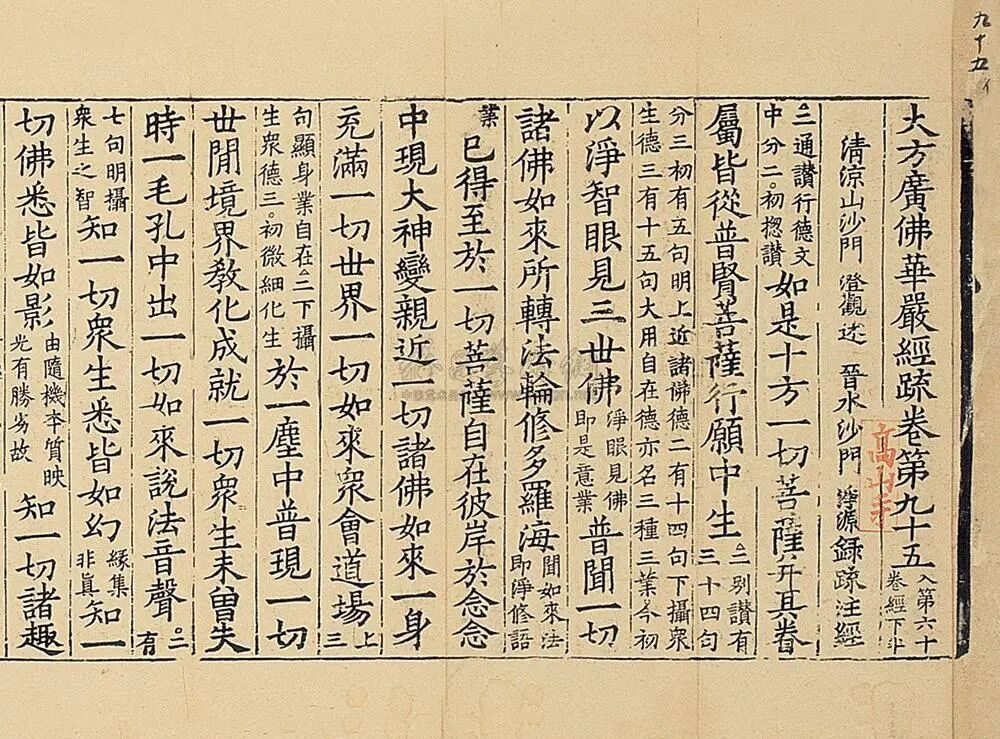 九十五
大方廣佛華嚴經疏卷第九十五入第六十卷經下半
清涼山沙門 澄觀述 晉水沙門 淨源錄疏注經
三通讚行德文中分二。初揔讚如是十方一切菩薩并其眷
屬皆從普賢菩薩行願中生二別讚有三十四句
分三初有五句明上近諸佛德二有十四句下攝衆生德三有十五句大用自在德亦名三種三業今初
以淨智眼見三世佛淨眼見佛即是意業普聞一切
諸佛如來所轉法輪修多羅海聞如來法即淨修語
業已得至於一切菩薩自在彼岸於念念
中現大神變親近一切諸佛如來一身
充滿一切世界一切如來衆會道場上三
句顯身業自在二下攝生衆德三。初微細化生於一塵中普現一切
世間境界教化成就一切衆生未曾失
時一毛孔中出一切如來說法音聲二有
七句明攝衆生之智知一切衆生悉皆如幻緣集非眞知一
切佛悉皆如影由隨機本質映光有勝劣故知一切諸趣
高山寺